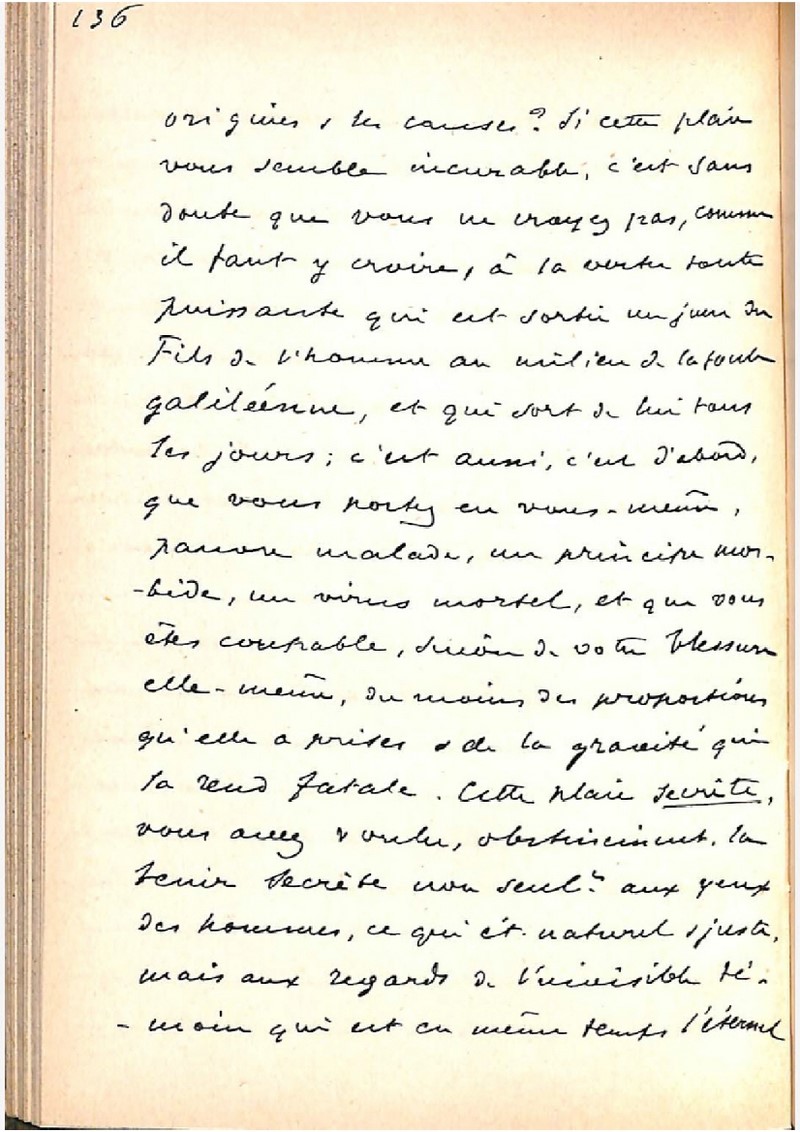 136
origines & les causes? Si cette plaie
vous semble incurable, c'est sans
doute que vous ne croyez pas, comme
il faut y croire, à la vertu toute
puissante qui est sortie un jour du
Fils de l'homme au milieu de la foule
galiléenne, et qui sort de lui tous
les jours; c'est aussi, c'est d'abord,
que vous portez en vous-même,
pauvre malade, un principe mor-
-bide, un virus mortel, et que vous
êtes coupable, sinon de votre blessure
elle-même, du moins des proportions
qu'elle a prises & de la gravité qui
la rend fatale. Cette plaie secrète,
vous avez voulu, obstinément, la
tenir secrète non seult aux yeux
des hommes, ce qui ét. naturel & juste,
mais aux regards de l'invisible té-
- moin qui est en même temps l'éternel